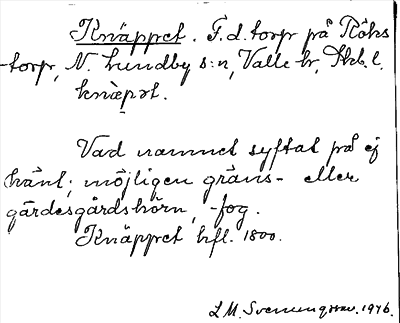 Knäppet. F.d. torp på Röks
-torp, N. Lundby s:n, Valle hr, Skb. l.
knæpət.
Vad namnet syftat på ej
känt; möjligen gräns- eller
gärdesgårdshörn, -fog.
Knäppet hfl. 1800.
L.M. Svennungsson. 1946.